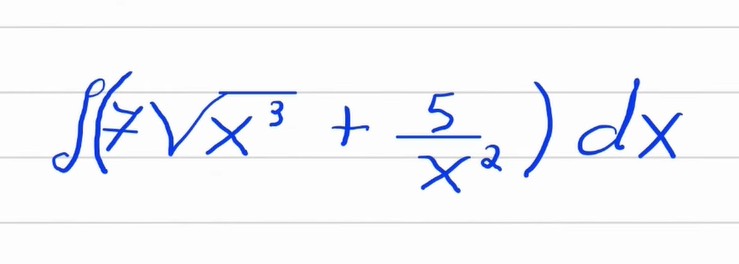 ∫(7√x³ + 5/x²) dx